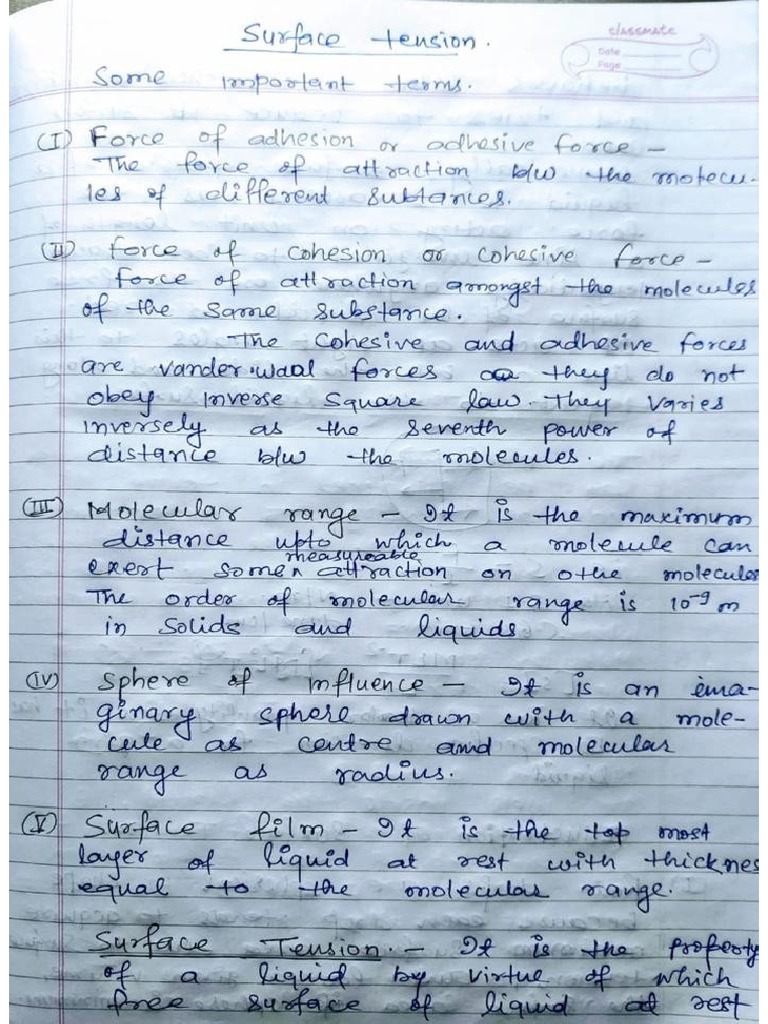 Surface tension.
classmate
Date
Page
Some important terms.
(I) Force of adhesion or adhesive force -
The force of attraction b/w the molecu-
les of different subtances.
(II) force of cohesion or cohesive force -
force of attraction amongst the molecules
of the same substance.
The cohesive and adhesive forces
are vander.waal forces they do not
obey inverse square law. They varies
inversely as the seventh power of
distance b/w the molecules.
(III) Molecular range - It is the maximum
distance upto which a molecule can
measureable
exert some attraction on othe molecules
The order of molecular range is 10-9 m
in solids and liquids
(IV) Sphere of influence - It is an ima-
ginary sphere drawn with a mole-
cule as centre and molecular
range as radius.
(V) Surface film - It is the top most
layer of liquid at rest with thicknes
equal to the molecular range.
Surface Tension. - It is the property
of a liquid by virtue of which
free surface of liquid at rest